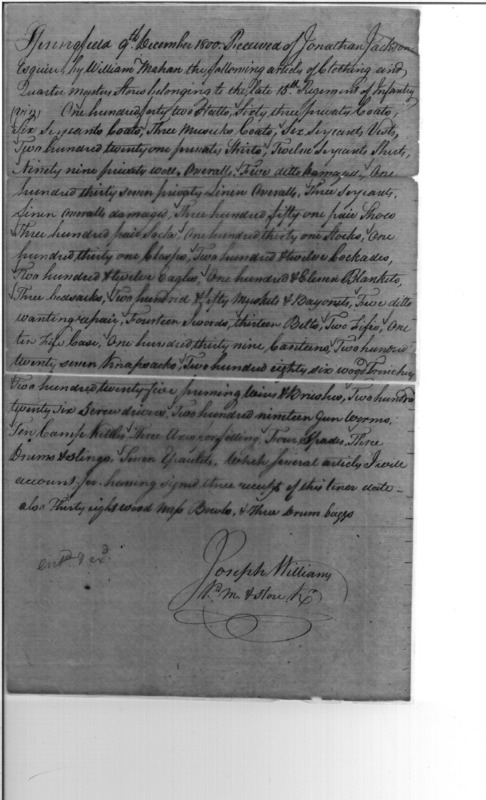 Springfield 9th December 1800. Received of Jonathan Jackson
Esquire by William Mahan the following articles of Clothing and
Quarter masters Stores belonging to the late 15th Regiment of Infantry
(Viz) One hundred forty two Hatts, Sixty three privates Coats,
Six Serjeants Coats, Three Musicks Coats, Six Serjeants Vests,
Two hundred twenty one privates Shirts, Twelve Serjeants Shirts,
Ninety nine privates wool. Overalls, Five ditto damaged, One
hundred thirty seven privates Linen Overalls, Three Serjeants,
Linen Overalls damaged, Three hundred fifty one pair Shoes
Three hundred pair Socks, One hundred thirty one Stocks, One
hundred thirty one Clasps, Two hundred & twelve Cockades,
Two hundred & twelve Eagles, One hundred & Eleven Blankets,
Three bedsacks, Two hundred & fifty Muskets & Bayonets, Five ditto
wanting repair, Fourteen Swords, thirteen Belts, Two Fifes, One
tin Fife Case, One hundred thirty nine Canteens, Two hundred
twenty seven Knapsacks, Two hundred eighty six wood
Two hundred twenty five priming wires & Brushes, Two hundred
twenty six Screw drivers, Two hundred nineteen Gun worms,
Ten Camp Kettles, Three Axes, Four Spades, Three
Drums & slings, Seven Epaulets, Which several articles I will
account for having signed three receipts of this tenor & date —
also Thirty eight wood mess Bowls, & Three Drum baggs
Joseph Williams
M. & Store Kr